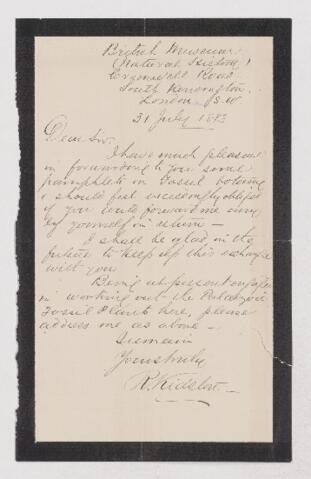 British Museum
(Natural History)
Cromwell Road
South Kensington.
London. S.W
31 July 1883
Dear Sir,
I have much pleasure
in forwarding to you some
pamphlets on Fossil botany
& should feel exceedingly obliged
if you could forward me any
by yourself in return —
I shall be glad in the
future to keep up this exchange
with you
Being at present engaged
in working out the Palaeozoic
Fossil Plants here, please
address me as above —
I remain
Yours truly
R. Kidston —